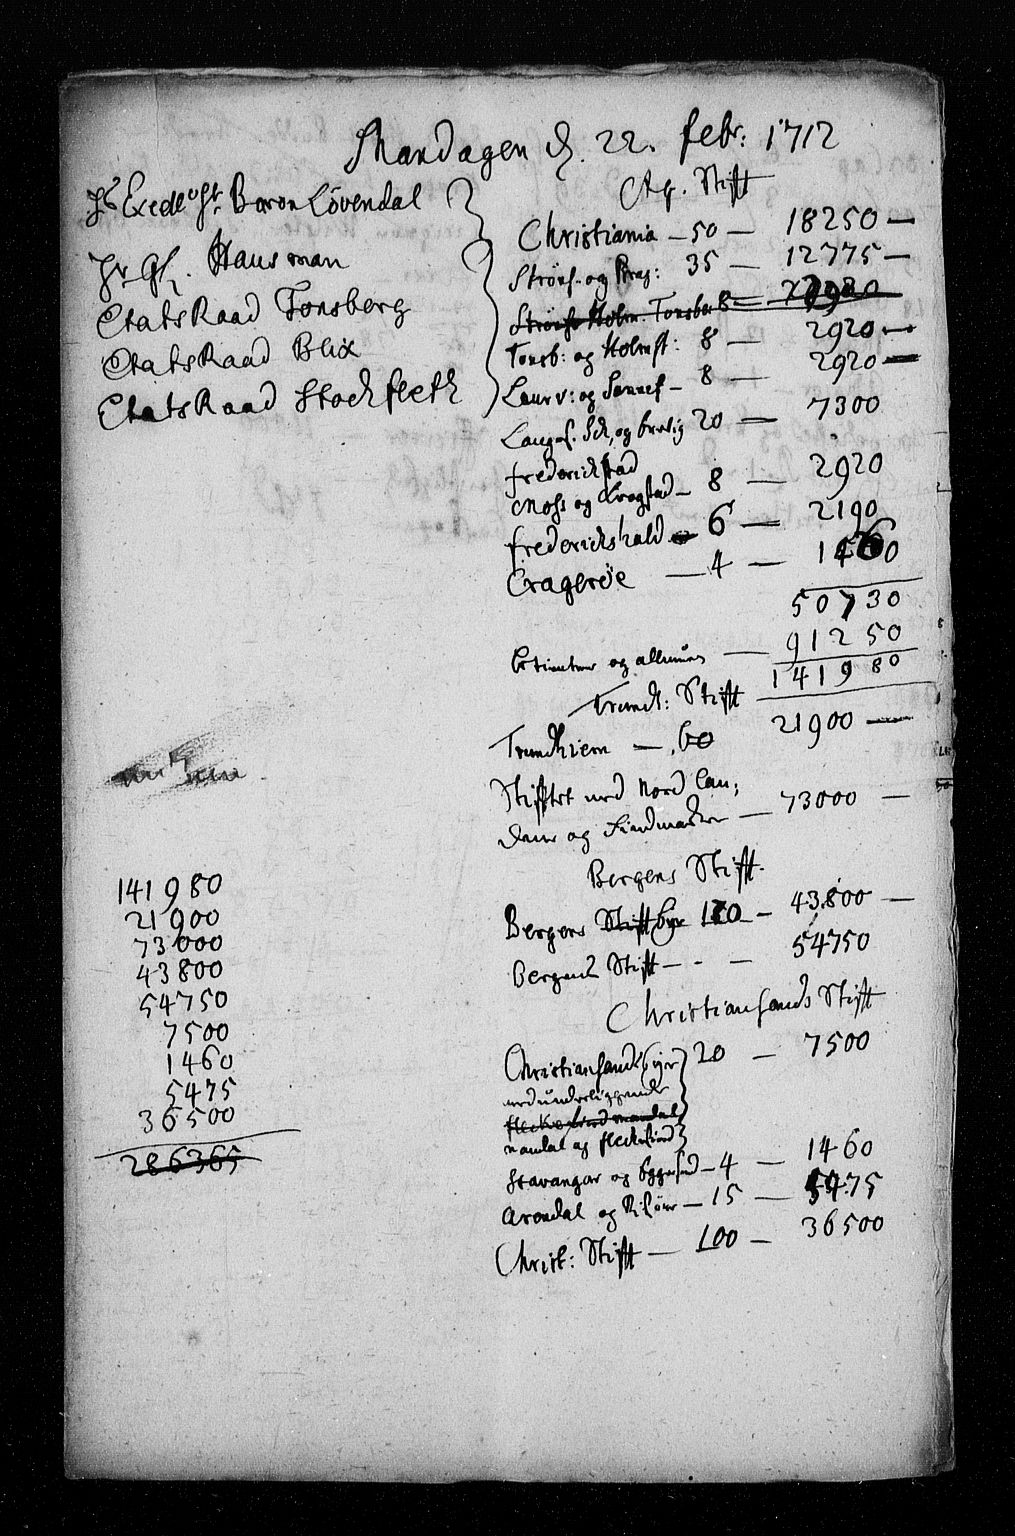 Mandagen d. 22. Febr: 1712
Hs Excell: Hr. Baron Løvendal
Hr Gh. Hausman
EtatsRaad Tonsberg
EtatsRaad Blix
EtatsRaad Stockfleth
Agh. Stifft
Christiania — 50 — 18250 —
Strøms. og Brag: 35 — 12775 —
Strømsø Holm Tonsber 8 — 2920
Tonsb: og Holmest: 8 — 2920 —
Laurv: og Sannef — 8 — 2920 —
Langes. Sch, og Brevig 20 — 7300
Frederichstad
Moss og Krogstad — 8 — 2920
Frederichshald — 6 — 2190
Cragerøe — 4 — 1460
50730
og allmuen — 91250
141980
Trundh: Stifft
Trundhiem — 60 21900 —
Stifftet med Nord Lan;
dene og Findmarken — 73000 —
Bergens Stifft
Bergens Stifft bye 120 — 43800 —
Bergens Stifft — - — 54750
Christiansands Stifft
Christiansands byer 20 — 7500
med underliggende
Fleckefiord mandal
mandal og Fleckefiord
Stavanger og Eggersund — 4 — 1460
Arendal og Risøer — 15 — 5475
Christ: Stifft — 100 — 36500
141980
21900
73000
43800
54750
7500
1460
5475
36500
286365